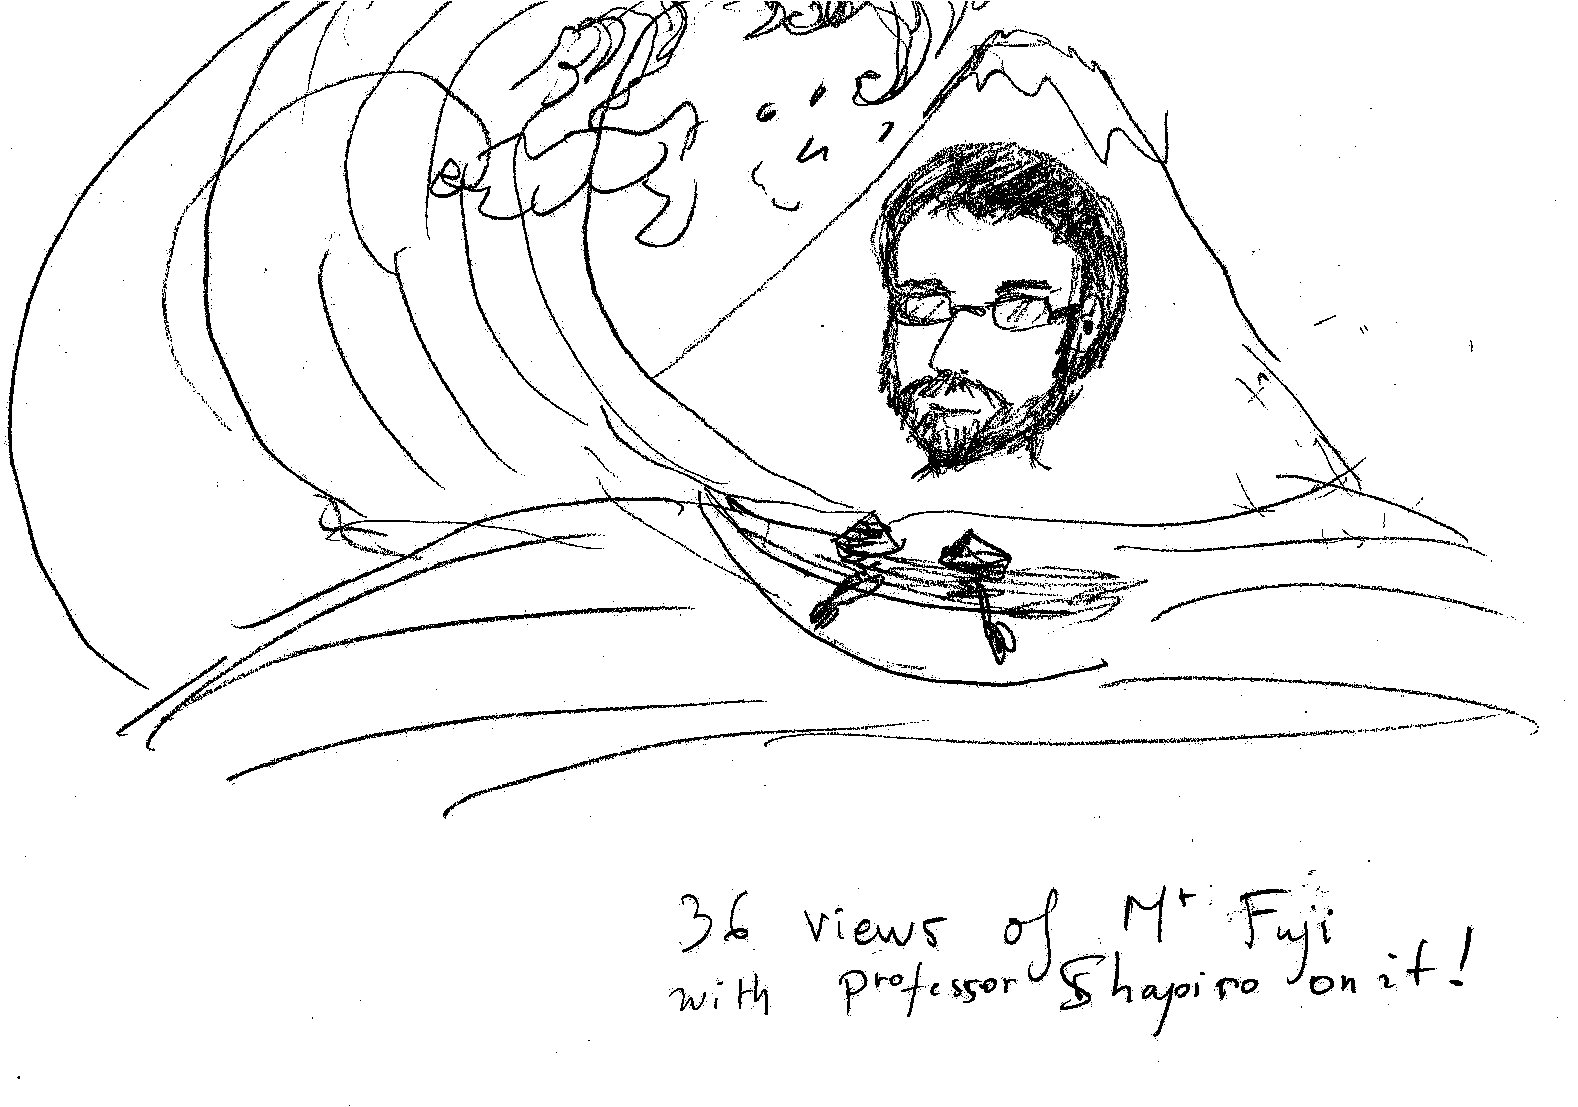 36 views of Mt Fuji
with professor Shapiro on it!